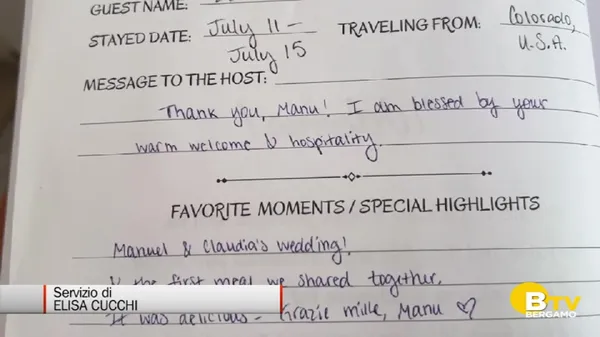 GUEST NAME:
STAYED DATE: July 11 - July 15
TRAVELING FROM: Colorado, U.S.A.
MESSAGE TO THE HOST:
Thank you, Manu! I am blessed by your
warm welcome & hospitality.
FAVORITE MOMENTS / SPECIAL HIGHLIGHTS
Manuel & Claudia's wedding!
& the first meal we shared together.
It was delicious - Grazie mille, Manu ♡
Servizio di
ELISA CUCCHI
BTV
BERGAMO